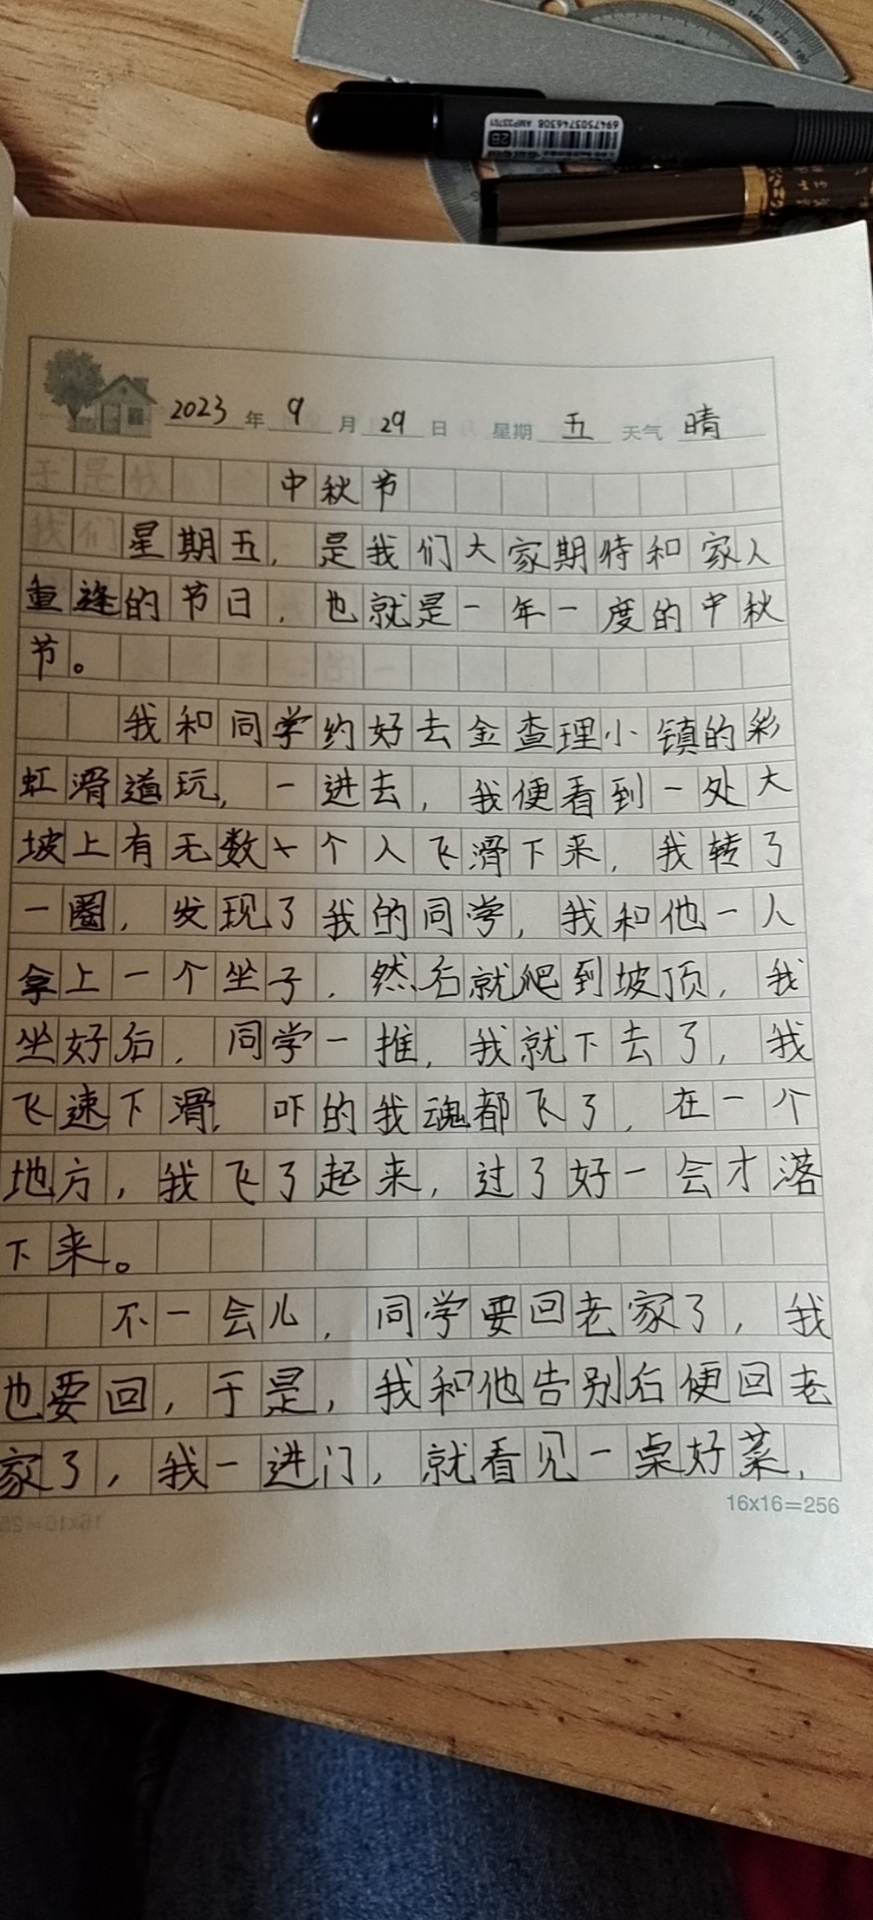 6947503746308 AMP33701
2B
2023 年 9 月 29 日 星期 五 天气 晴
中秋节
星期五，是我们大家期待和家人
重逢的节日，也就是一年一度的中秋
节。
我和同学约好去金查理小镇的彩
虹滑道玩，一进去，我便看到一处大
坡上有无数个人飞滑下来，我转了
一圈，发现了我的同学，我和他一人
拿上一个坐子，然后就爬到坡顶，我
坐好后，同学一推，我就下去了，我
飞速下滑，吓的我魂都飞了，在一个
地方，我飞了起来，过了好一会才落
下来。
不一会儿，同学要回老家了，我
也要回，于是，我和他告别后便回老
家了，我一进门，就看见一桌好菜，
16x16=256